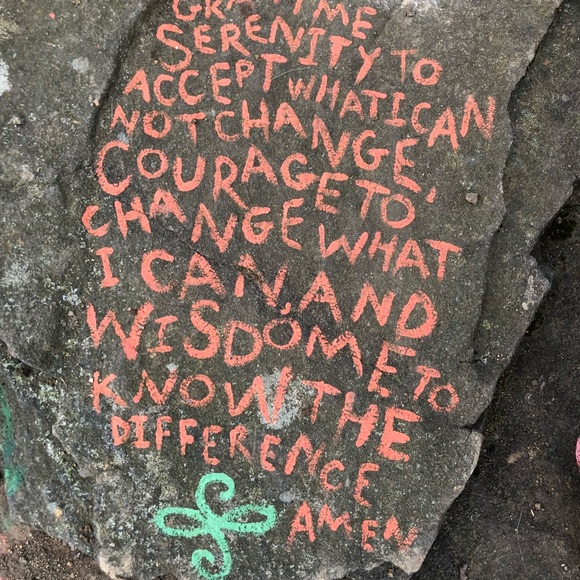 GRANT ME
SERENITY TO
ACCEPT WHAT I CAN
NOT CHANGE,
COURAGE TO
CHANGE WHAT
I CAN, AND
WISDOM E TO
KNOW THE
DIFFERENCE
AMEN